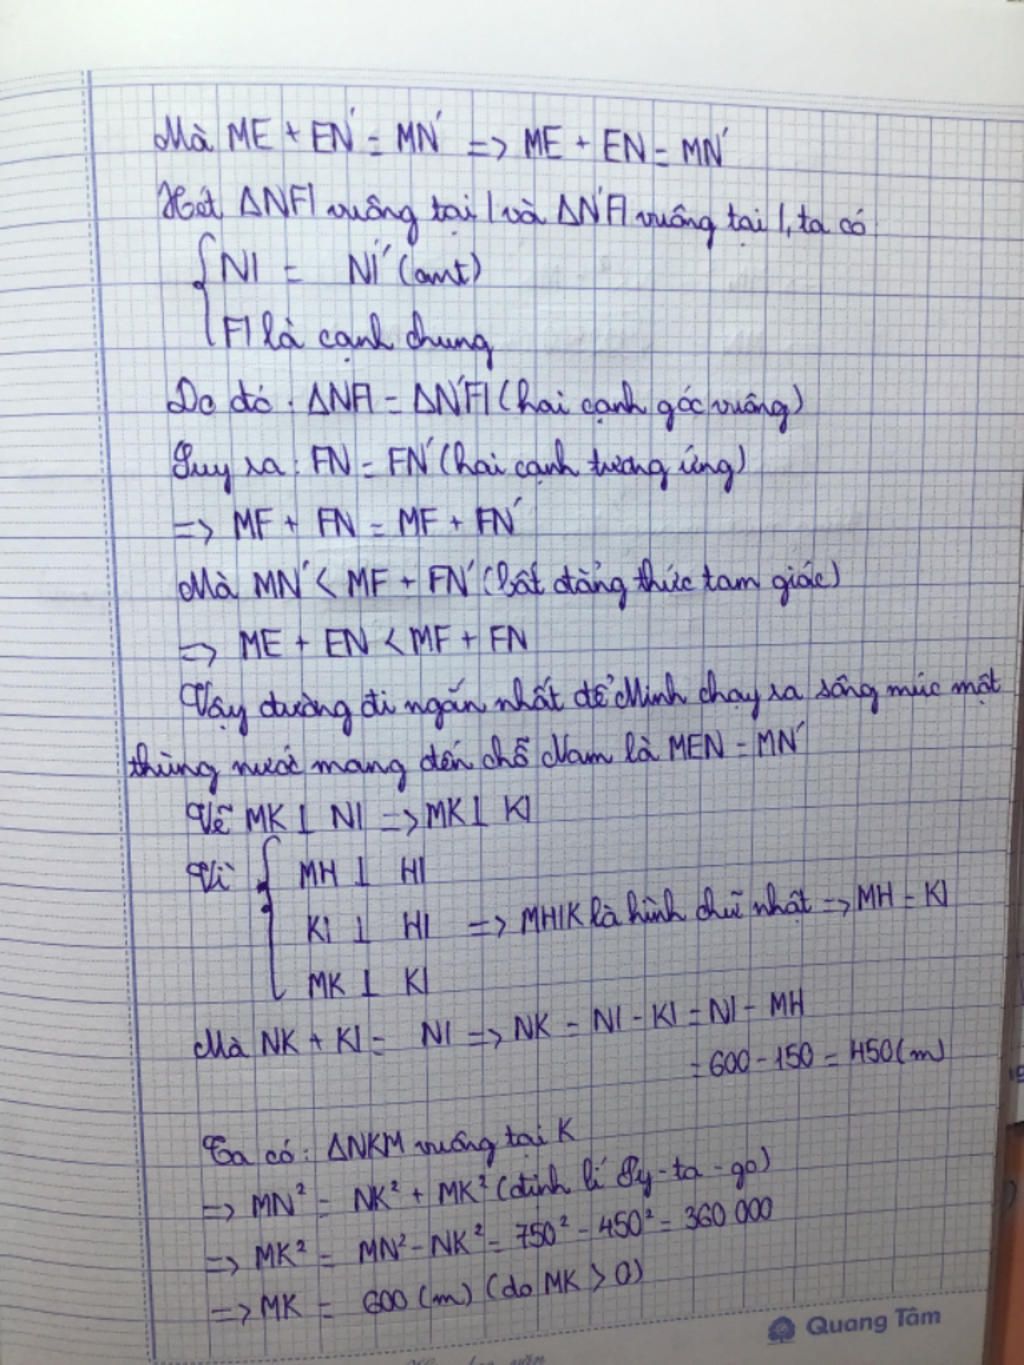 Mà ME + EN' = MN' => ME + EN = MN'
Xét ΔNFI vuông tại I và ΔN'FI vuông tại I, ta có
{ NI = N'I (cmt)
FI là cạnh chung
Do đó: ΔNFI = ΔN'FI (hai cạnh góc vuông)
Suy ra: FN = FN' (hai cạnh tương ứng)
=> MF + FN = MF + FN'
Mà MN' < MF + FN' (bất đẳng thức tam giác)
=> ME + EN < MF + FN
Vậy đường đi ngắn nhất để Minh chạy ra sông múc một
thùng nước mang đến chỗ Nam là MEN = MN'
Vẽ MK ⊥ NI => MK ⊥ KI
Vì { MH ⊥ HI
KI ⊥ HI => MHIK là hình chữ nhật => MH = KI
MK ⊥ KI
Mà NK + KI = NI => NK = NI - KI = NI - MH
= 600 - 150 = 450 (m)
Ta có: ΔNKM vuông tại K
=> MN² = NK² + MK² (định lí Py-ta-go)
=> MK² = MN² - NK² = 750² - 450² = 360 000
=> MK = 600 (m) (do MK > 0)
Quang Tâm